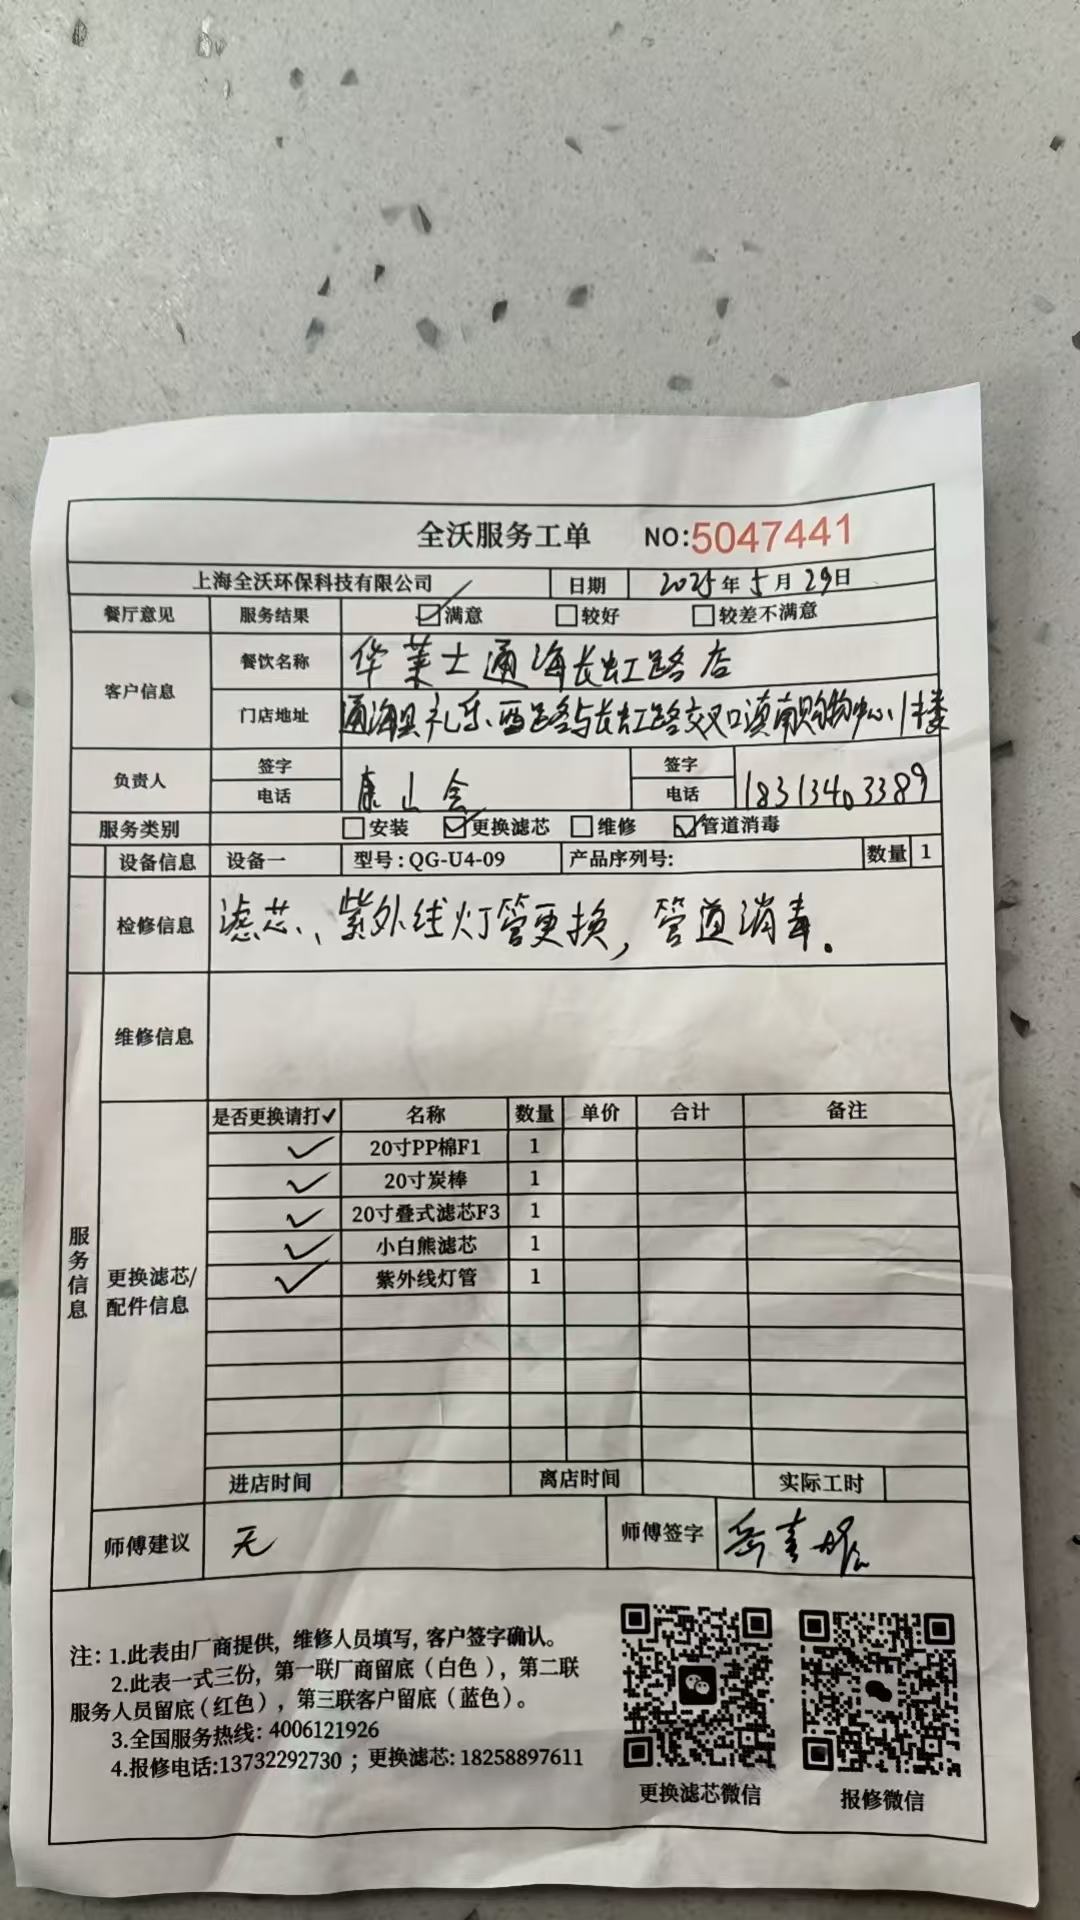 全沃服务工单 NO:5047441
上海全沃环保科技有限公司 日期 2025年5月29日
餐厅意见 服务结果 ☑满意 ☐较好 ☐较差不满意
客户信息 餐饮名称 华莱士通海长虹路店
门店地址 通海县礼乐西路与长虹路交叉口滇南购物中心1楼
负责人 签字 签字
电话 电话 18313403389
服务类别 ☐安装 ☑更换滤芯 ☐维修 ☑管道消毒
设备信息 设备一 型号:QG-U4-09 产品序列号: 数量 1
检修信息 滤芯、紫外线灯管更换,管道消毒.
维修信息
服务信息
更换滤芯/
配件信息
是否更换请打✓ 名称 数量 单价 合计 备注
✓ 20寸PP棉F1 1
✓ 20寸炭棒 1
✓ 20寸叠式滤芯F3 1
✓ 小白熊滤芯 1
✓ 紫外线灯管 1
进店时间 离店时间 实际工时
师傅建议 无 师傅签字
注: 1.此表由厂商提供, 维修人员填写, 客户签字确认。
2.此表一式三份, 第一联厂商留底(白色), 第二联
服务人员留底(红色), 第三联客户留底(蓝色)。
3.全国服务热线: 4006121926
4.报修电话:13732292730 ; 更换滤芯: 18258897611
更换滤芯微信 报修微信